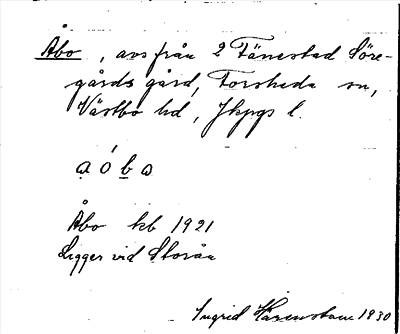 Åbo, avs från 2 Tånestad Söre-
gårds gård, Forsheda sn,
Västbo hd, Jkpgs l.
Åbo kb 1921
Ligger vid Storån
Ingrid 1930